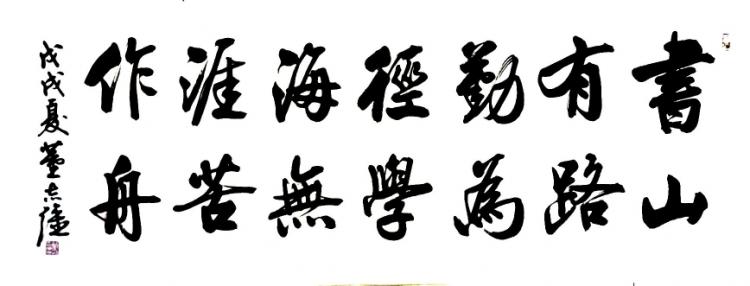 書山
有路
勤為
徑學
海無
涯苦
作舟
戊戌夏